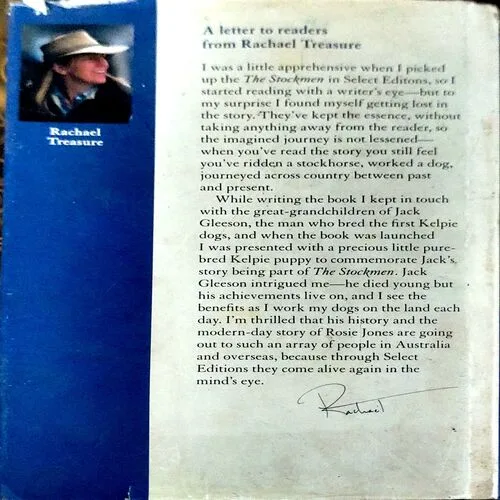 Rachael
Treasure
A letter to readers
from Rachael Treasure
I was a little apprehensive when I picked
up the The Stockmen in Select Editons, so I
started reading with a writer's eye—but to
my surprise I found myself getting lost in
the story. They've kept the essence, without
taking anything away from the reader, so
the imagined journey is not lessened—
when you've read the story you still feel
you've ridden a stockhorse, worked a dog,
journeyed across country between past
and present.
While writing the book I kept in touch
with the great-grandchildren of Jack
Gleeson, the man who bred the first Kelpie
dogs, and when the book was launched
I was presented with a precious little pure-
bred Kelpie puppy to commemorate Jack's
story being part of The Stockmen. Jack
Gleeson intrigued me—he died young but
his achievements live on, and I see the
benefits as I work my dogs on the land each
day. I'm thrilled that his history and the
modern-day story of Rosie Jones are going
out to such an array of people in Australia
and overseas, because through Select
Editions they come alive again in the
mind's eye.
Rachael